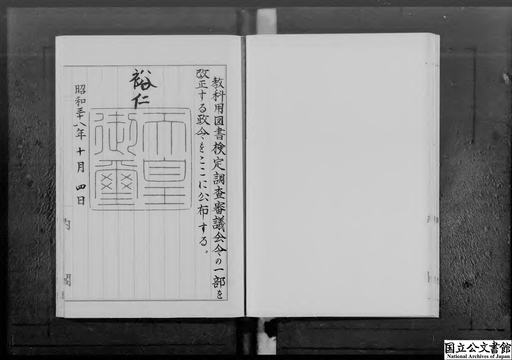 教科用図書検定調査審議会令の一部を
改正する政令をここに公布する。
裕仁
天皇
御璽
昭和三十八年十月四日
内閣
国立公文書館
National Archives of Japan